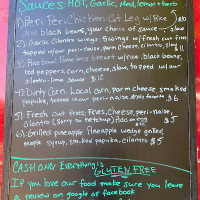 Sauces: HOT, Garlic, Mild, lemon + herb
1) Peri Peri Chicken Cut Leg w/ Rice
and black beans, your choice of sauce + slaw
2) Garlic Cilantro wings - 5 wings w/ fresh cut fries
topped w/ our peri-naise, parm cheese, cilantro, slaw
3) Rice bowl Boneless breast w/ rice, black beans,
red peppers, corn, cheese, slaw, topped w/ our
cilantro-lime sauce $12
4) Dirty Corn. Local corn, parm cheese, smoked
paprika, tossed in our peri-naise $6
5) Fresh cut fries. Fries, Cheese, peri-naise,
cilantro (Sorry no ketchup) $5
6) Grilled pineapple Pineapple wedge grilled,
maple syrup, smoked paprika, cilantro $5
CASH ONLY Everything is
GLUTEN FREE
If you love our food make sure you leave
a review on google or facebook